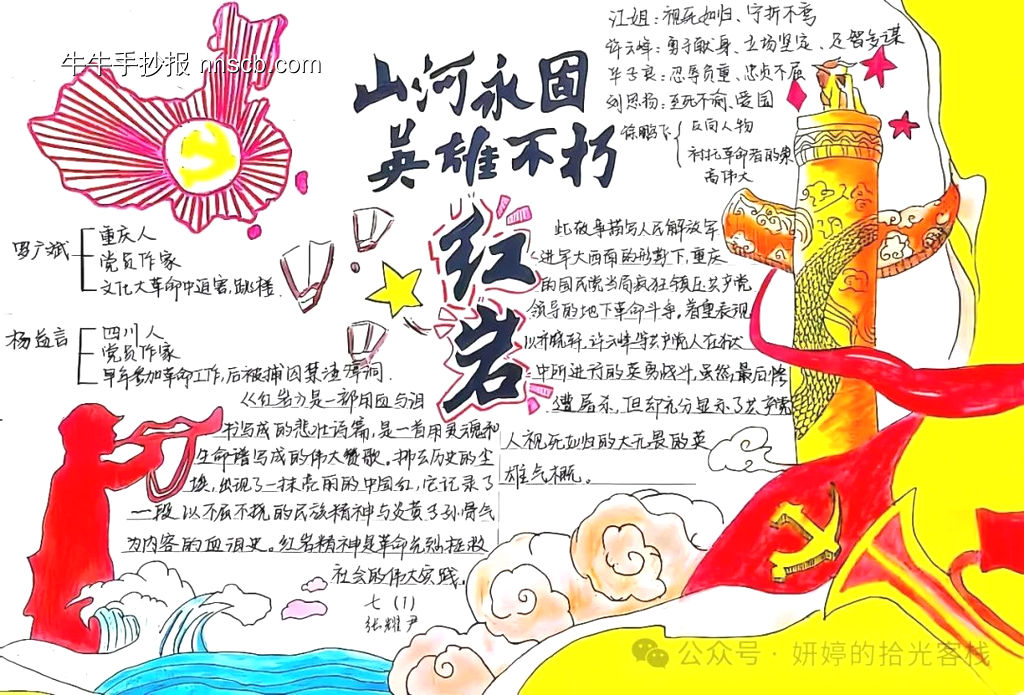 牛牛手抄报 nnscb.com
山河永固
英雄不朽
红岩
江姐：视死如归、宁折不弯
许云峰：勇于献身、立场坚定、足智多谋
华子良：忍辱负重、忠贞不屈
刘思扬：至死不渝、爱国
徐鹏飞
反面人物
衬托革命者的崇
高伟大
罗广斌
重庆人
党员作家
文化大革命中迫害，跳楼.
杨益言
四川人
党员作家
早年参加革命工作，后被捕囚禁渣滓洞.
《红岩》是一部用血与泪
书写成的悲壮诗篇，是一首用灵魂和
生命谱写成的伟大赞歌。挪去历史的尘
埃，出现了一抹亮丽的中国红，它记录了
一段以不屈不挠的民族精神与炎黄子孙骨气
为内容的血泪史。红岩精神是革命先烈拯救
社会的伟大实践。
七（1）
张耀尹
此故事描写人民解放军
进军大西南的形势下，重庆
的国民党当局疯狂镇压共产党
领导的地下革命斗争。着重表现
以齐晓轩、许云峰等共产党人在狱
中所进行的英勇战斗，虽然最后惨
遭屠杀，但却充分显示了共产党
人视死如归的大无畏的英
雄气概。
公众号·妍婷的拾光客栈